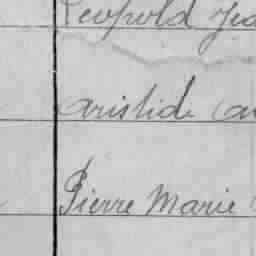 Leopold
Aristide
Pierre Marie